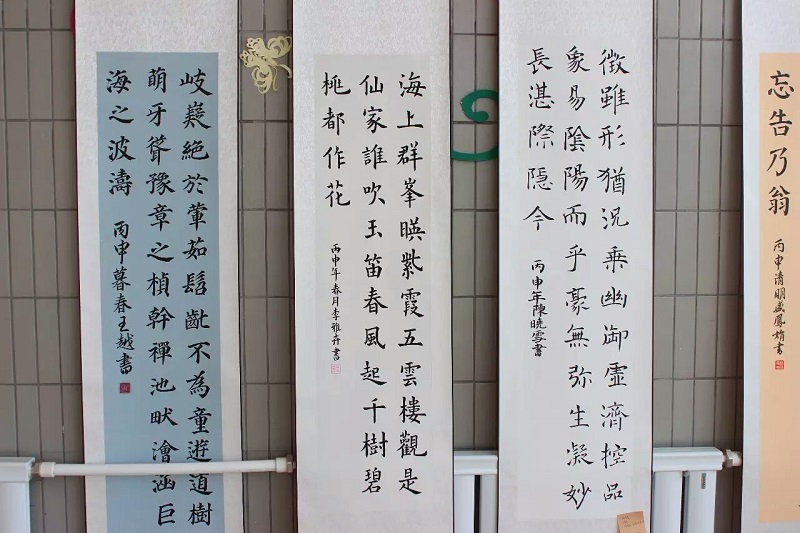 岐嶷絕於葷茹髫齔不為童遊道樹
萌牙聳豫章之楨幹禪池畎澮涵巨
海之波濤
丙申暮春王越書
海上群峯暎紫霞五雲樓觀是
仙家誰吹玉笛春風起千樹碧
桃都作花
丙申年春月李雅卉書
徵雖形猶況乘幽御虛濟控品
象易陰陽而乎豪無弥生凝妙
長湛際隱今
丙申年陳曉雪書
忘告乃翁
丙申清明盛鳳娟書